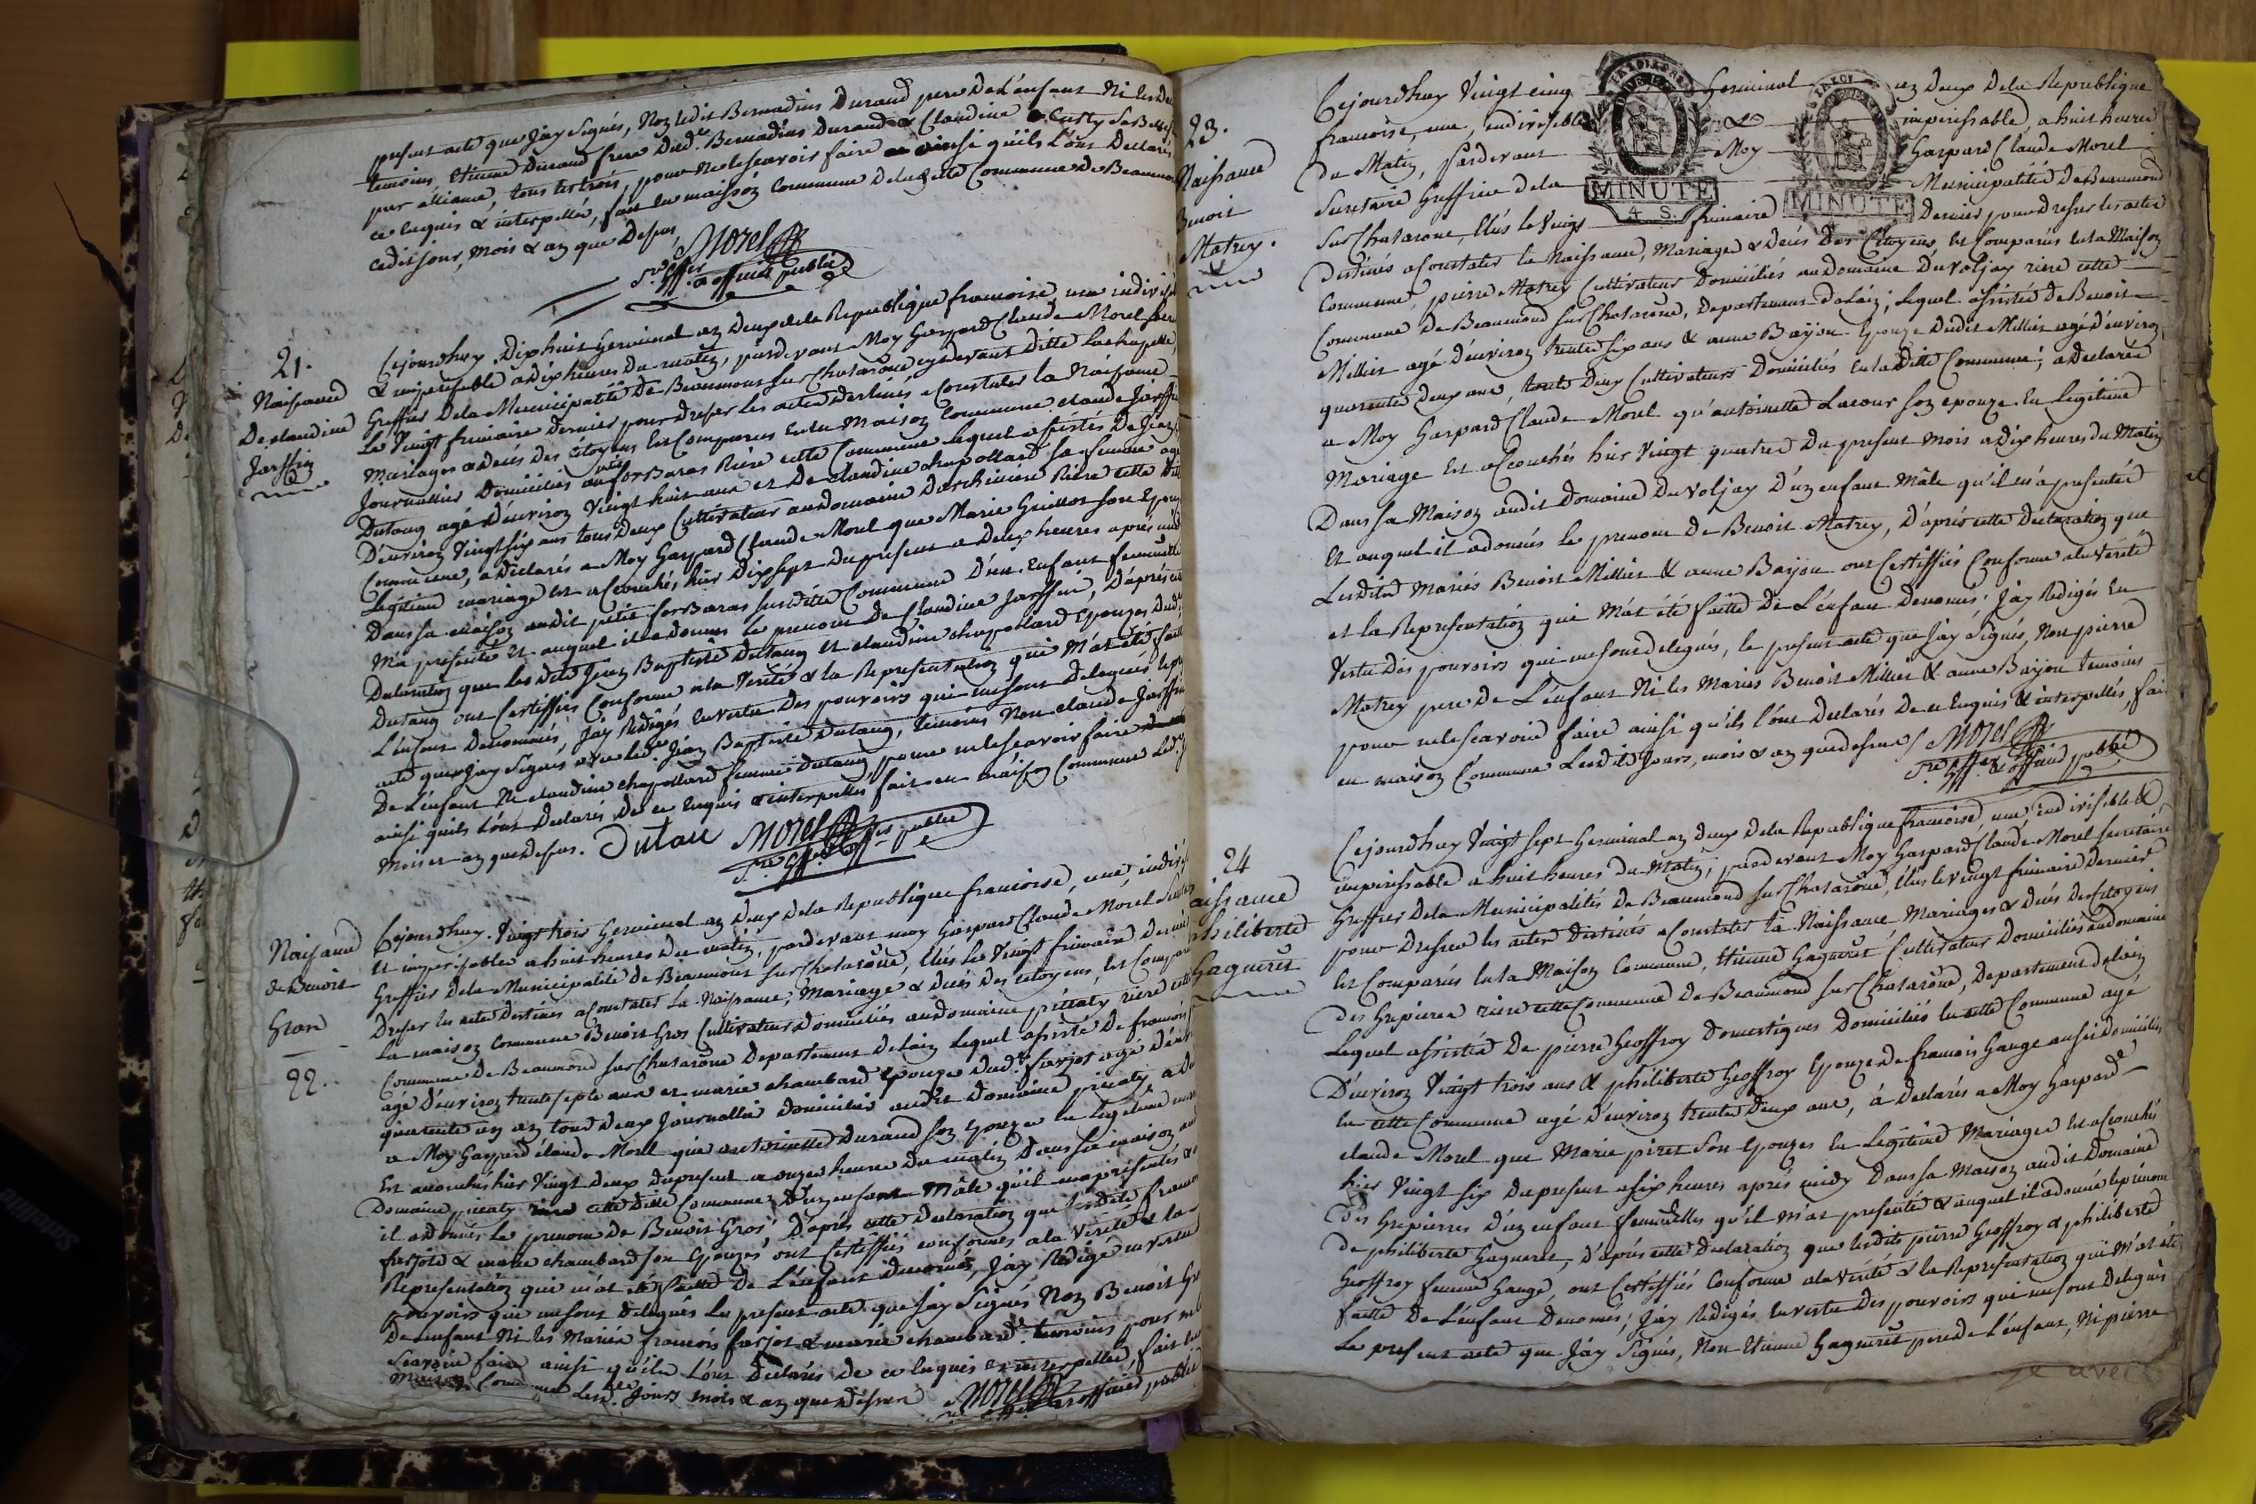 present acte que Jay Signés, Non ledit Bernardins Durand pere De L'enfant Ni les Deux
temoins Etienne Durand frere Dud. Bernardins Durand & Claudine
par alliance, tous les trois, pour ne le scavoir faire ainsi qu'ils L'ont Declarés
ce Enquis & interpellés, fait en maison Commune de la ditte Commune de Beaumon
cedit jour, mois & an que Dessus
Morel
S.re Gffier & officié public
21.
Naissance
De claudine
Jarffin
Cejourdhuy Dixhuit Germinal an Deux de la Republique francoise, une indivisi
& imperissable a dix heures du matin, pardevant Moy Gaspard Claude Morel secre
Greffier De la Municipalité De Beaumont sur Chalarône cydevant ditte Lachapelle,
Le Vingt frimaire Dernier pour dresser les actes destinés a Constater la Naissance
Mariages & deces des citoyens Est Comparus en la Maison Commune claude Jarffin
Journallier Domiciliés au forBaras Riere cette Commune lequel assistés De Jean
Dutang agé D'environ Vingt huit ans et De claudine chapollard sa femme agé
D'environ Vingt six ans tous Deux Cultivateurs au Domaine Darchiniere Riere cette ditte
Commune, a Declarés a Moy Gaspard Claude Morel que Marie Guillot son Epouse
Legitime mariage est acouchés, hier Dixsept du present a Deux heures apres midi
Dans sa maison audit petit forBaras susditte Commune D'un Enfant femelle
M'a presenté et auquel il a donnés le prenom De Claudine Jarffin, D'après cette
Declaration que les dits Jean Baptiste Dutang et claudine chapollard Epouzes dud.
Dutang ont Certiffiés Conforme a la Verité & la Representation qui M'at eté faite
L'enfant Denommés, Jay Redigés en vertu des pouvoirs qui me sont delegués le pre
acte que Jay Signés avec ledit Jean Baptiste Dutang, temoins Non claude Jarffin
De L'enfant Ni claudine chapollard femme Dutang pour ne le scavoir faire
ainsi quils L'ont Declarés De ce Enquis & interpellés fait en maison Commune Led. Jour
Mois et an que dessus. Dutan Morel
S.re Gff. & off. public
Naisance
de Benoit
Gros
22.
Cejourdhuy Vingt trois Germinal an Deux de la Republique francoise, une, indivi
et imperissable a huit heures du matin, pardevant moy Gaspard Claude Morel Secre
Greffier De la Municipalité de Beaumont sur Chalarône, Elus Le Vingt frimaire Dernié
Dresser les actes Destinés a Constater La Naissance, Mariage & decés Des citoyens, Est Compa
La maison Commune Benoit Gros Cultivateur Domiciliés au domaine piccaty riere cette
Commune De Beaumond sur Chalarône Departement de Lain Lequel assisté De francois
agé D'environ trente sept ans et marie chambard Epouze Dud. farjot agé D'envi
quarente un an tous deux Journallié domiciliés audit domaine piccaty, a De
a Moy Gaspard claude Morel que antoinette Durand son Epouze en Legitime mar
Est acouchés hier Vingt Deux dupresent a onze heure du matin Dans sa maison au
Domaine piccaty riere cette ditte Commune, D'un enfant Mâle qu'il m'a presentés &
il a donnés Le prenom de Benoit Gros, D'après cette Declaration que lesdits franco
farjots & marie chambard son Epouze, ont Certiffiés conformes a la Verité & la
Representation qui m'at eté faitte de L'enfant denomés, Jay Redigé en vertu
pouvoirs qui me sont delegués Le present acte que Jay Signés Non Benoit Gr
De L'enfant Ni les Mariés francois farjot & marie chambard temoins pour ne le
scavoir faire ainsi qu'ils L'ont Declarés de ce Enquis et interpellés, fait en
Maison Commune Lesd. Jours mois & an que dessus Morel
officiés public
23.
Naissance
Benoit
Matrey.
Cejourdhuy Vingt cinq Germinal an Deux De la Republique
francoise, une, indivisible & imperissable, a huit heures
du Matin, pardevant Moy Gaspard Claude Morel
Secretaire Greffier de la Municipalité de Beaumond
sur Chalarône, Elus le Vingt frimaire Dernier pour dresser les actes
Destinés a Constater la Naissance, Mariage & deces Des Citoyens, est Comparus en la Maison
Commune, pierre Matrey Cultivateur Domiciliés au domaine du Voljay riere cette
Commune de Beaumond sur Chalarône, Departement de Lain; Lequel assisté de Benoit
Millier agé d'environ trente six ans & anne Bajjon Epouze Dudit Millier agé d'environ
quarente deux ans, tout Deux Cultivateurs Domiciliés en la ditte Commune; a declarée
a Moy Gaspard Claude Morel qu'antoinette Lacour son epouze En Legitime
Mariage Est acouchés hier Vingt quatre Du present mois a dix heures du Matin
Dans sa Maison audit Domaine Du Voljay D'un enfant Mâle qu'il m'a presentée
Et auquel il a donnés le prenom de Benoit Matrey, D'après cette declaration que
Lesdits Mariés Benoit Millier & anne Bajjon ont Certiffiés Conforme a la Verité
et la Representation qui M'at eté faitte De L'enfant denommés; Jay Redigés En
Vertu Des pouvoirs qui me sont delegués, le present acte que Jay Signés, Non pierre
Matrey pere De L'enfant Ni les Mariés Benoit Millier & anne Bajjon temoins
pour ne le scavoir faire ainsi qu'ils L'ont declarés De ce Enquis & interpellés, fait
en maison Commune Lesdits Jours, mois & an que dessus Morel
S.re Gffier & officié public
24
Naissance
Philiberte
Gagneret
Cejourdhuy Vingt sept Germinal an deux de la Republique francoise, une, indivisible &
imperissable a huit heures du Matin, pardevant Moy Gaspard Claude Morel Secretaire
Greffier De la Municipalités de Beaumond sur Chalarône, Elus le vingt frimaire Dernier
pour Dresser les actes Destinés a Constater la Naissance Mariages & deces des citoyens
Est Comparus en la Maison Commune, Etienne Gagneret Cultivateur Domiciliés au domaine
Des Grepierres riere cette Commune De Beaumond sur Chalarône, Departement de Lain
Lequel assistés De pierre Geoffroy Domestiques Domiciliés en cette Commune agé
D'environ Vingt trois ans & philiberte Geoffroy Epouze de francois Gange aussi domiciliés
en cette Commune agé d'environ trente deux ans, à Declarés a Moy Gaspard
claude Morel que Marie piret son Epouze En Legitime Mariage Est acouchés
hier Vingt six du present a six heures après midy Dans sa Maison audit Domaine
Des Grepierres D'un enfant femmelles qu'il m'at presenté & auquel il a donné le prenom
De philiberte Gagneret, D'après cette declaration que lesdits pierre Geoffroy & philiberte
Geoffroy femme Gange, ont Certiffiés Conforme a la Verité & la Representation qui M'at eté
faitte De L'enfant Denomés; Jay Redigés en vertu Des pouvoirs qui me sont Delegués
Le present acte que Jay Signés, Non Etienne Gagneret pere de L'enfant, Ni pierre
MINUTE
4 S.
MINUTE